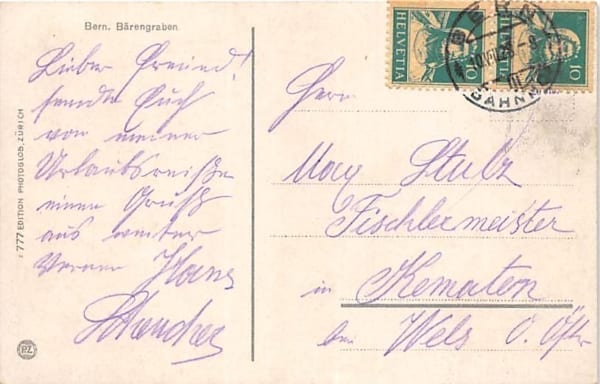 Bern. Bärengraben.
Lieber Freund!
sende Euch
von meiner
Urlaubsreiße
einen Gruß
aus weiter
Hans
Herrn
Max Stulz
Tischlermeister
in Kematen
bei Wels O. Östr
HELVETIA 10
HELVETIA 10
BERN
BAHNH
7777 EDITION PHOTOGLOB, ZÜRICH
PZ